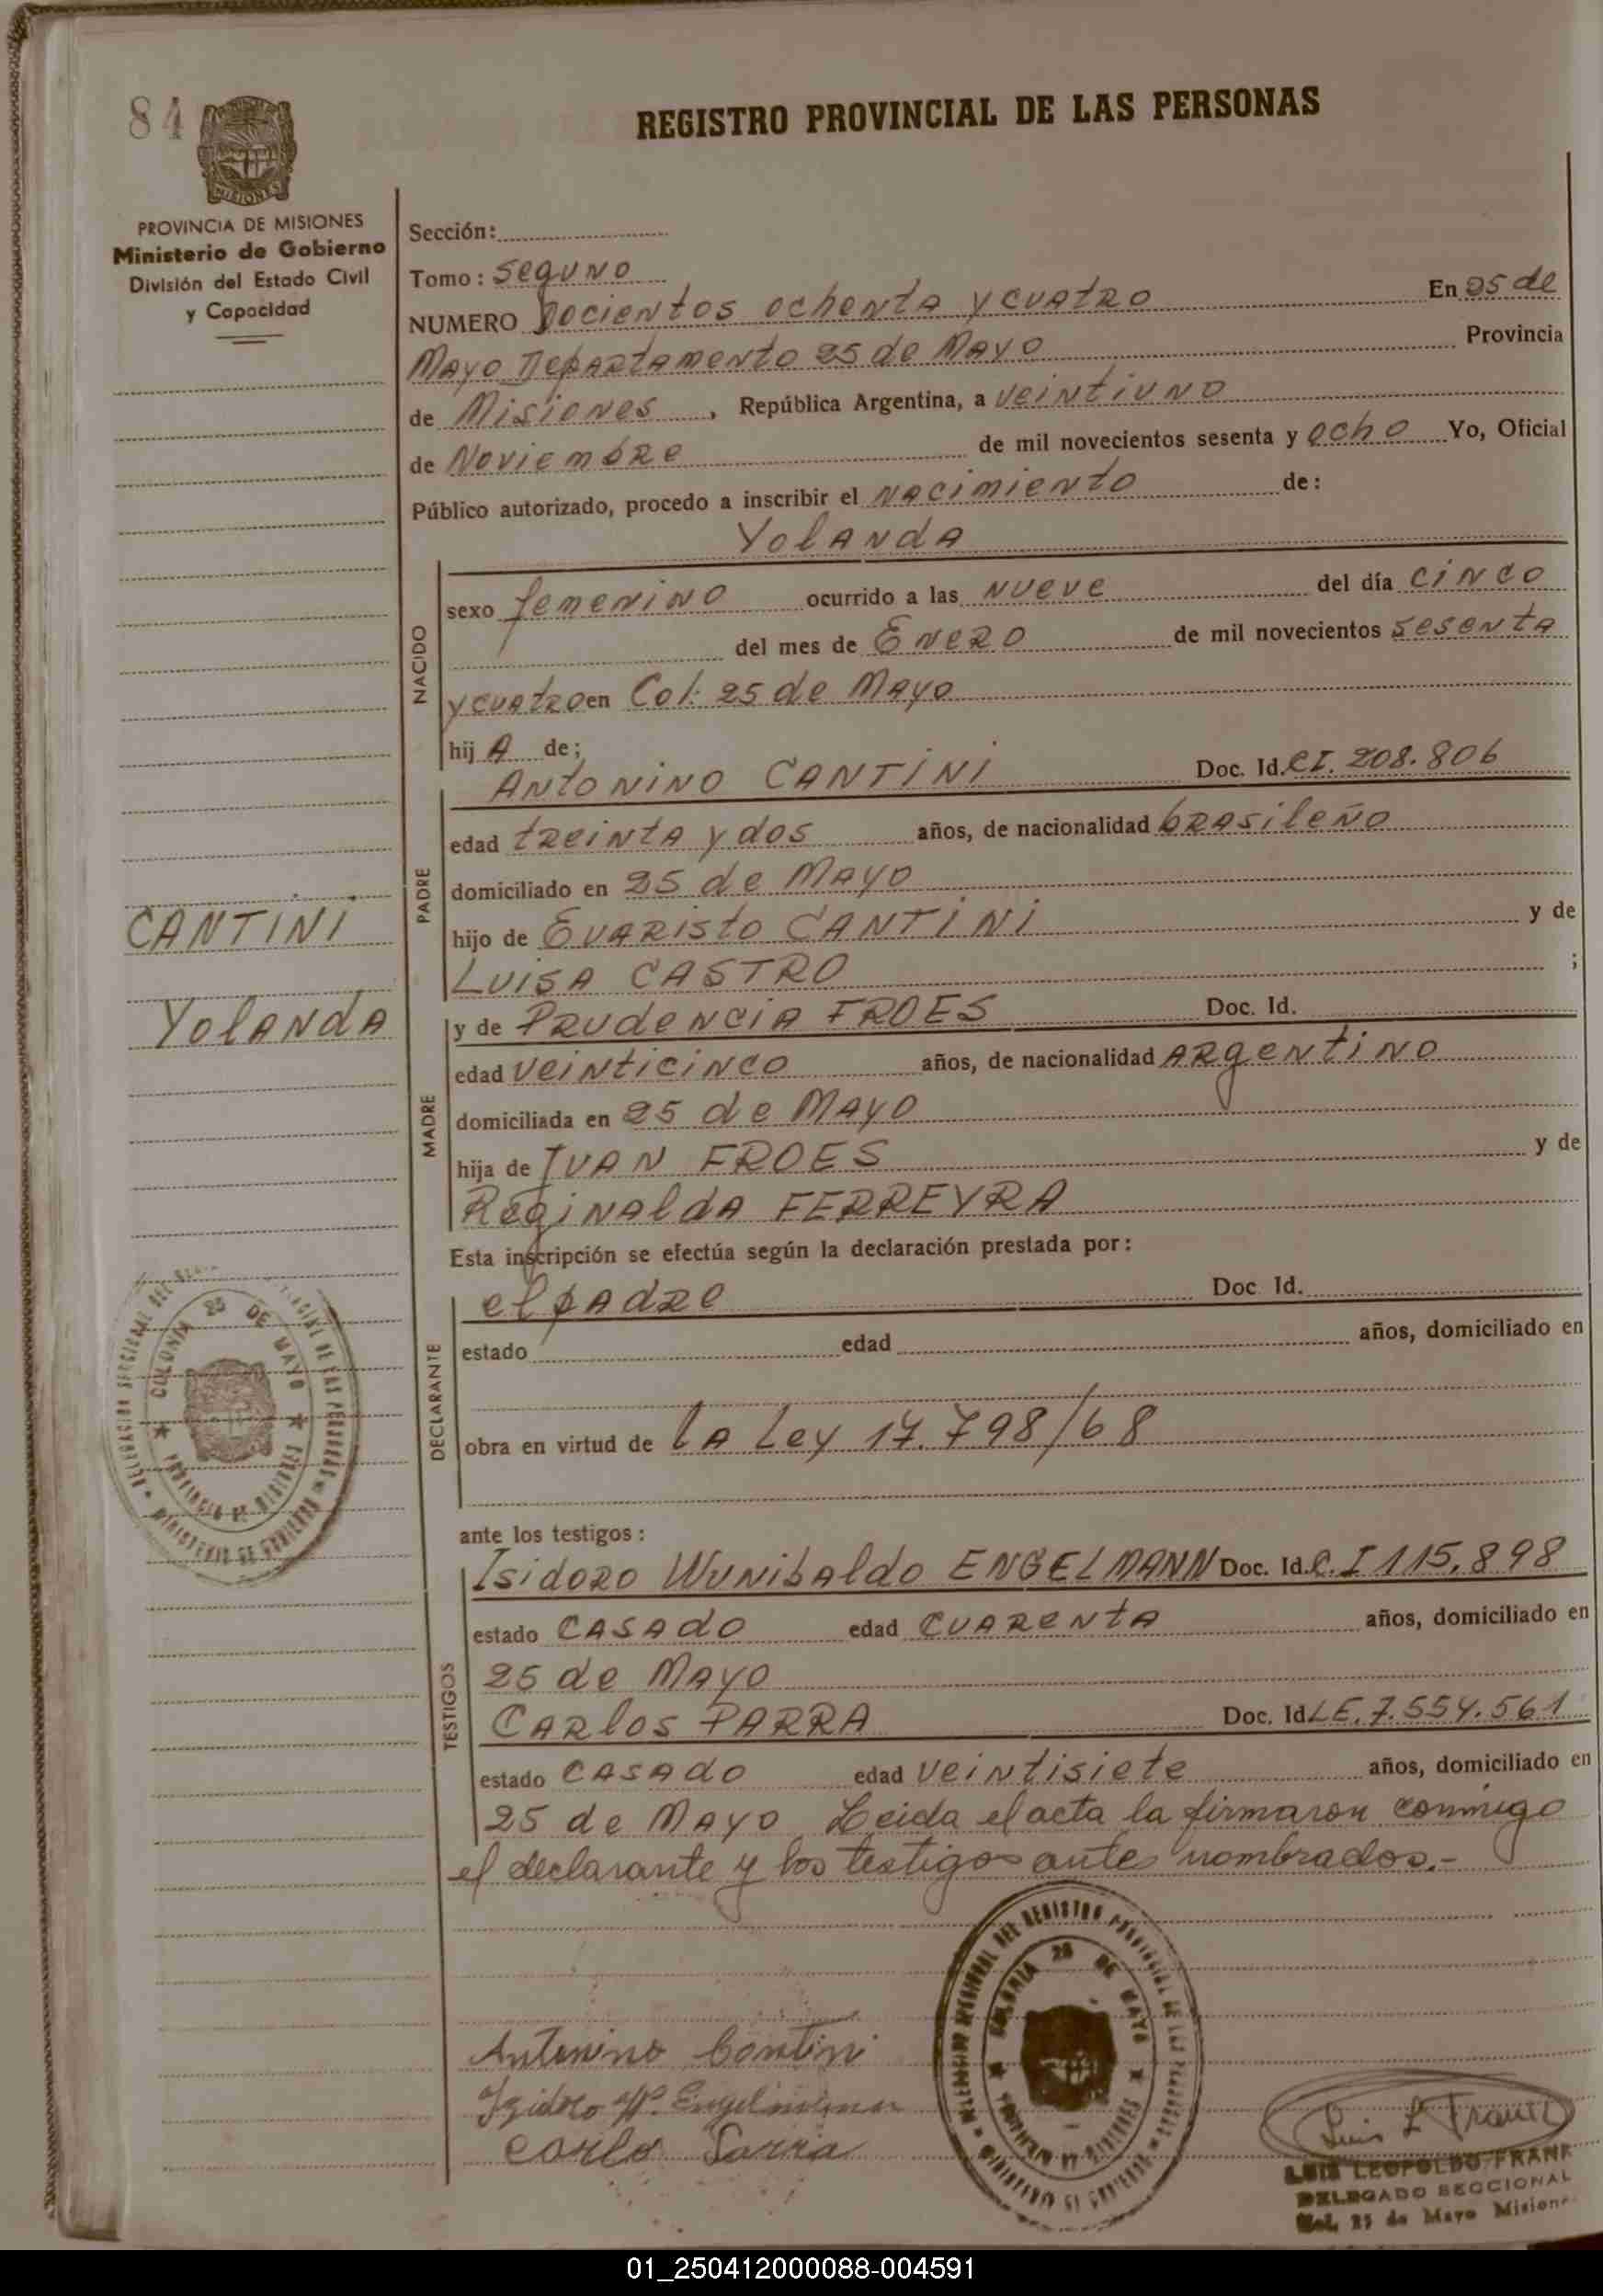 84
REGISTRO PROVINCIAL DE LAS PERSONAS
MISIONES
PROVINCIA DE MISIONES
Ministerio de Gobierno
División del Estado Civil
y Capacidad
Sección:
Tomo: Seguno
NUMERO Docientos ochenta y cuatro En 25 de
Mayo Departamento 25 de Mayo Provincia
de Misiones, República Argentina, a veintiuno
de Noviembre de mil novecientos sesenta y ocho Yo, Oficial
Público autorizado, procedo a inscribir el nacimiento de:
Yolanda
NACIDO
sexo femenino ocurrido a las nueve del día cinco
del mes de Enero de mil novecientos sesenta
y cuatro en Col. 25 de Mayo
hij A de;
PADRE
Antonino CANTINI Doc. Id. CI. 208.806
edad treinta y dos años, de nacionalidad brasileño
domiciliado en 25 de Mayo
hijo de Evaristo CANTINI y de
Luisa CASTRO ;
CANTINI
Yolanda
MADRE
y de Prudencia FROES Doc. Id.
edad veinticinco años, de nacionalidad Argentino
domiciliada en 25 de Mayo
hija de Ivan FROES y de
Reginalda FERREYRA
Esta inscripción se efectúa según la declaración prestada por:
DECLARANTE
el padre Doc. Id.
estado edad años, domiciliado en
obra en virtud de la Ley 17.798/68
COLONIA 25 DE MAYO
PROVINCIA DE MISIONES
MINISTERIO DE GOBIERNO
ante los testigos:
TESTIGOS
Isidoro Wunibaldo ENGELMANN Doc. Id. C.I 115.898
estado casado edad cuarenta años, domiciliado en
25 de Mayo
Carlos PARRA Doc. Id LE. 7.554.561
estado casado edad veintisiete años, domiciliado en
25 de Mayo Leida el acta la firmaron conmigo
el declarante y los testigos antes nombrados.-
DELEGACION SECCIONAL DEL REGISTRO PROVINCIAL DE LAS PERSONAS
COLONIA 25 DE MAYO
Antonino Contini
Isidoro W. Engelmann
Carlo Parra
Luis L Frank
LUIS LEOPOLDO FRANK
DELEGADO SECCIONAL
Col. 25 de Mayo Misiones
01_250412000088-004591